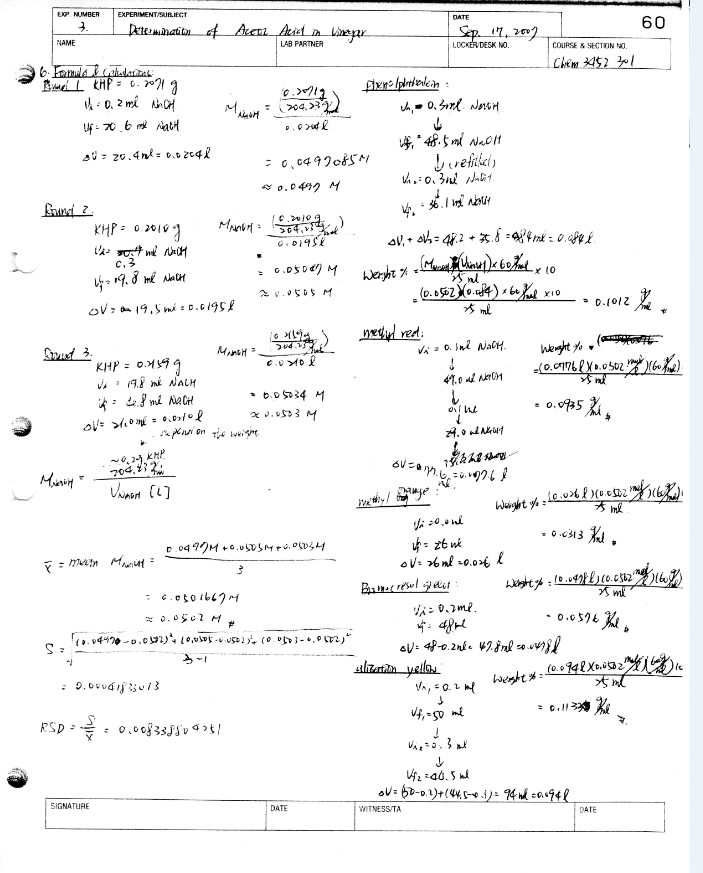 EXP. NUMBER EXPERIMENT/SUBJECT DATE 60
3. Determination of Acetic Acid in Vinegar Sep. 17, 2007
NAME LAB PARTNER LOCKER/DESK NO. COURSE & SECTION NO.
Chem 3452 301
6. Formula & Calculations
Round 1. KHP = 0.2071 g
Vi = 0.2 ml NaOH
Vf = 20.6 ml NaOH
ΔV = 20.4 ml = 0.0204 l
M NaOH = (0.2071 g / 204.23 g/mol) / 0.0204 l
= 0.0497085 M
≈ 0.0497 M
Round 2.
KHP = 0.2010 g
Vi = 0.3 ml NaOH
Vf = 19.8 ml NaOH
ΔV = 19.5 ml = 0.0195 l
M NaOH = (0.2010 g / 204.23 g/mol) / 0.0195 l
= 0.05047 M
≈ 0.0505 M
Round 3.
KHP = 0.2159 g
Vi = 19.8 ml NaOH
ml NaOH
ΔV = 21.0 ml = 0.0210 l
M NaOH = (0.2159 g / 204.23 g/mol) / 0.0210 l
= 0.05034 M
≈ 0.0503 M
depend on the weight
M NaOH = (~0.2g KHP / 204.23 g/mol) / V NaOH [L]
x̄ = mean M NaOH = (0.0497M + 0.0505M + 0.0503M) / 3
= 0.0501667 M
≈ 0.0502 M #
S = √((0.0497 - 0.0502)² + (0.0505 - 0.0502)² + (0.0503 - 0.0502)² / 3-1)
= 0.00041833013
RSD = S / x̄ = 0.008338804251
phenolphthalein:
Vi₁ = 0.3 ml NaOH
↓
Vf₁ = 48.5 ml NaOH
↓ (refilled)
Vi₂ = 0.3 ml NaOH
↓
Vf₂ = 36.1 ml NaOH
ΔV₁ + ΔV₂ = 48.2 + 35.8 = 84 ml = 0.084 l
Weight % = (M NaOH)(V NaOH) × 60 g/mol / 25 ml × 10
= (0.0502)(0.084) × 60 g/mol × 10 / 25 ml = 0.1012 g/ml #
methyl red:
Vi = 0.1 ml NaOH
↓
49.0 ml NaOH
↓
0.1 ml
↓
29.0 ml NaOH
ΔV = 0.0776 l
Weight % = (0.0776 l)(0.0502 mol/l)(60 g/mol) / 25 ml
= 0.0935 g/ml #
methyl orange:
Vi = 0.0 ml
Vf = 26 ml
ΔV = 26 ml = 0.026 l
Weight % = (0.026 l)(0.0502 mol/l)(60 g/mol) / 25 ml
= 0.0313 g/ml #
Bromocresol green:
Vi = 0.2 ml
Vf = 48 ml
ΔV = 48 - 0.2 ml = 47.8 ml = 0.0478 l
Weight % = (0.0478 l)(0.0502 mol/l)(60 g/mol) / 25 ml
= 0.0576 g/ml #
alizarin yellow:
Vi₁ = 0.2 ml
↓
Vf₁ = 50 ml
↓
Vi₂ = 0.3 ml
↓
Vf₂ = 44.5 ml
ΔV = (50-0.2) + (44.5-0.3) = 94 ml = 0.094 l
Weight % = (0.094 l)(0.0502 mol/l)(60 g/mol) 10 / 25 ml
SIGNATURE DATE WITNESS/TA DATE